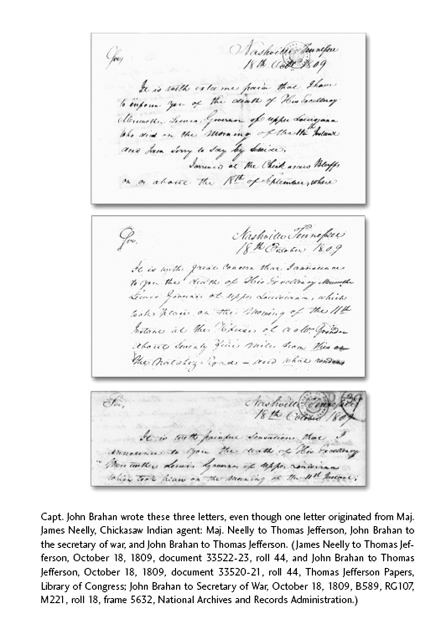 Sir,
Nashville Tennessee
18th Octr 1809
It is with extreme pain that I have
to inform you of the death of His Excellency
Meriwether Lewis, Governor of upper Louisiana
who died on the morning of the 11th Instant
and I am Sorry to Say by Suicide.
I arrived at the Chickasaws Bluffs
on or about the 18th of September, where
Sir,
Nashville Tennessee
18th October 1809
It is with great Concern that I announce
to you the death of His Excellency Meriwether
Lewis Governor of upper Louisiana, which
took place on the Morning of the 11th
Instant at the House of a Mr
about Seventy five miles from this on
the Natchez Road — and what
Sir,
Nashville Tennessee
18th October 1809
It is with painful Sensations that I
announce to you the death of His Excellency
Meriwether Lewis Governor of upper Louisiana
which took place on the Morning of the 11th Instant,
Capt. John Brahan wrote these three letters, even though one letter originated from Maj.
James Neelly, Chickasaw Indian agent: Maj. Neelly to Thomas Jefferson, John Brahan to
the secretary of war, and John Brahan to Thomas Jefferson. (James Neelly to Thomas Jef-
ferson, October 18, 1809, document 33522-23, roll 44, and John Brahan to Thomas
Jefferson, October 18, 1809, document 33520-21, roll 44, Thomas Jefferson Papers,
Library of Congress; John Brahan to Secretary of War, October 18, 1809, B589, RG107,
M221, roll 18, frame 5632, National Archives and Records Administration.)